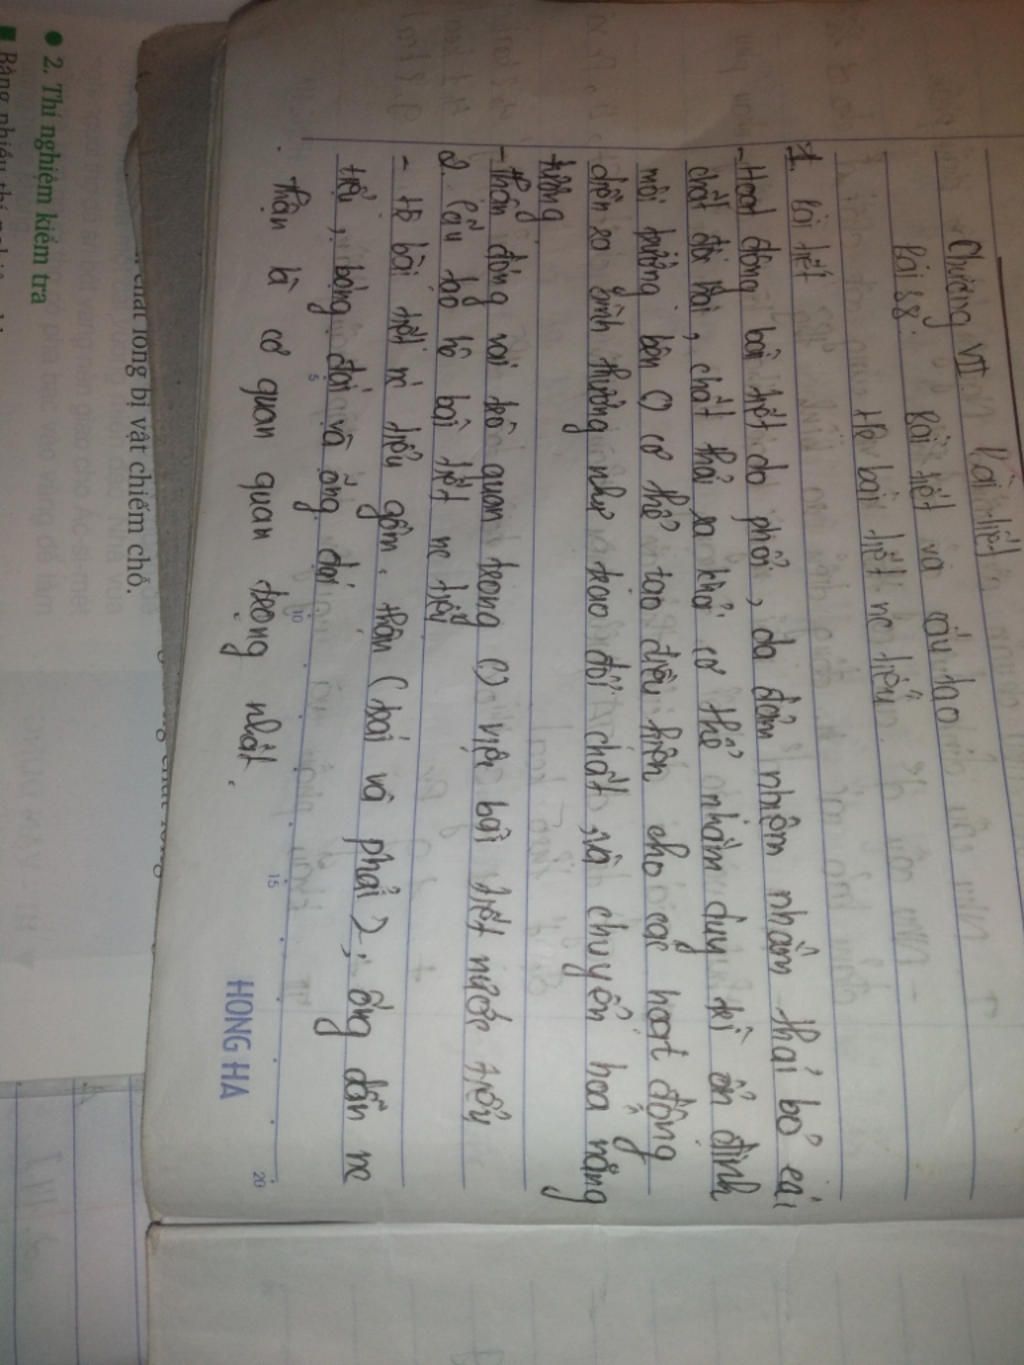 Chương VII. Bài tiết
Bài 38. Bài tiết và cấu tạo
hệ bài tiết nc tiểu
1. Bài tiết
- Hoạt động bài tiết do phổi, da đảm nhiệm nhằm thải bỏ các
chất độc hại, chất thải ra khỏi cơ thể nhằm duy trì ổn định
môi trường bên () cơ thể tạo điều kiện cho các hoạt động
diễn ra bình thường như trao đổi chất và chuyển hoá năng
lượng
- Thận đóng vai trò quan trọng () việc bài tiết nước tiểu
2. Cấu tạo hệ bài tiết nc tiểu
- Hệ bài tiết nc tiểu gồm. thận (trái và phải), ống dẫn nc
tiểu, bóng đái và ống đái
. Thận là cơ quan quan trọng nhất.
5
10
15
20
HONG HA
chất lỏng bị vật chiếm chỗ.
2. Thí nghiệm kiểm tra